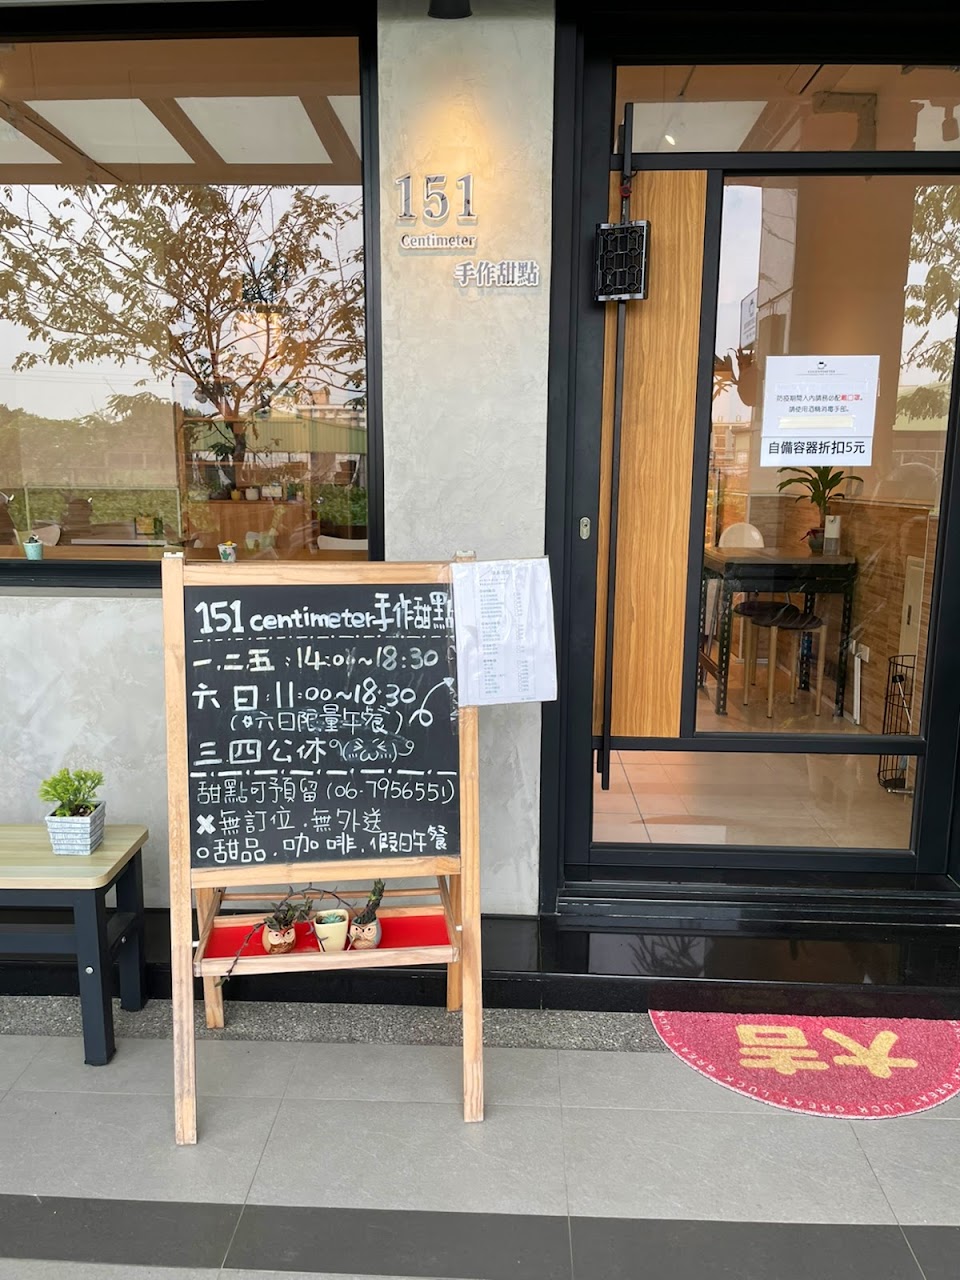 151
Centimeter
手作甜點
防疫期間入內請務必配戴口罩。
請使用酒精消毒手部。
自備容器折扣5元
151 centimeter手作甜點
一.二五:14:00~18:30
六日:11:00~18:30
(六日限量午餐)
三四公休
甜點可預留(06-7956551)
×無訂位.無外送
○甜品.咖啡.假日午餐
大吉
GREAT LUCK GREAT